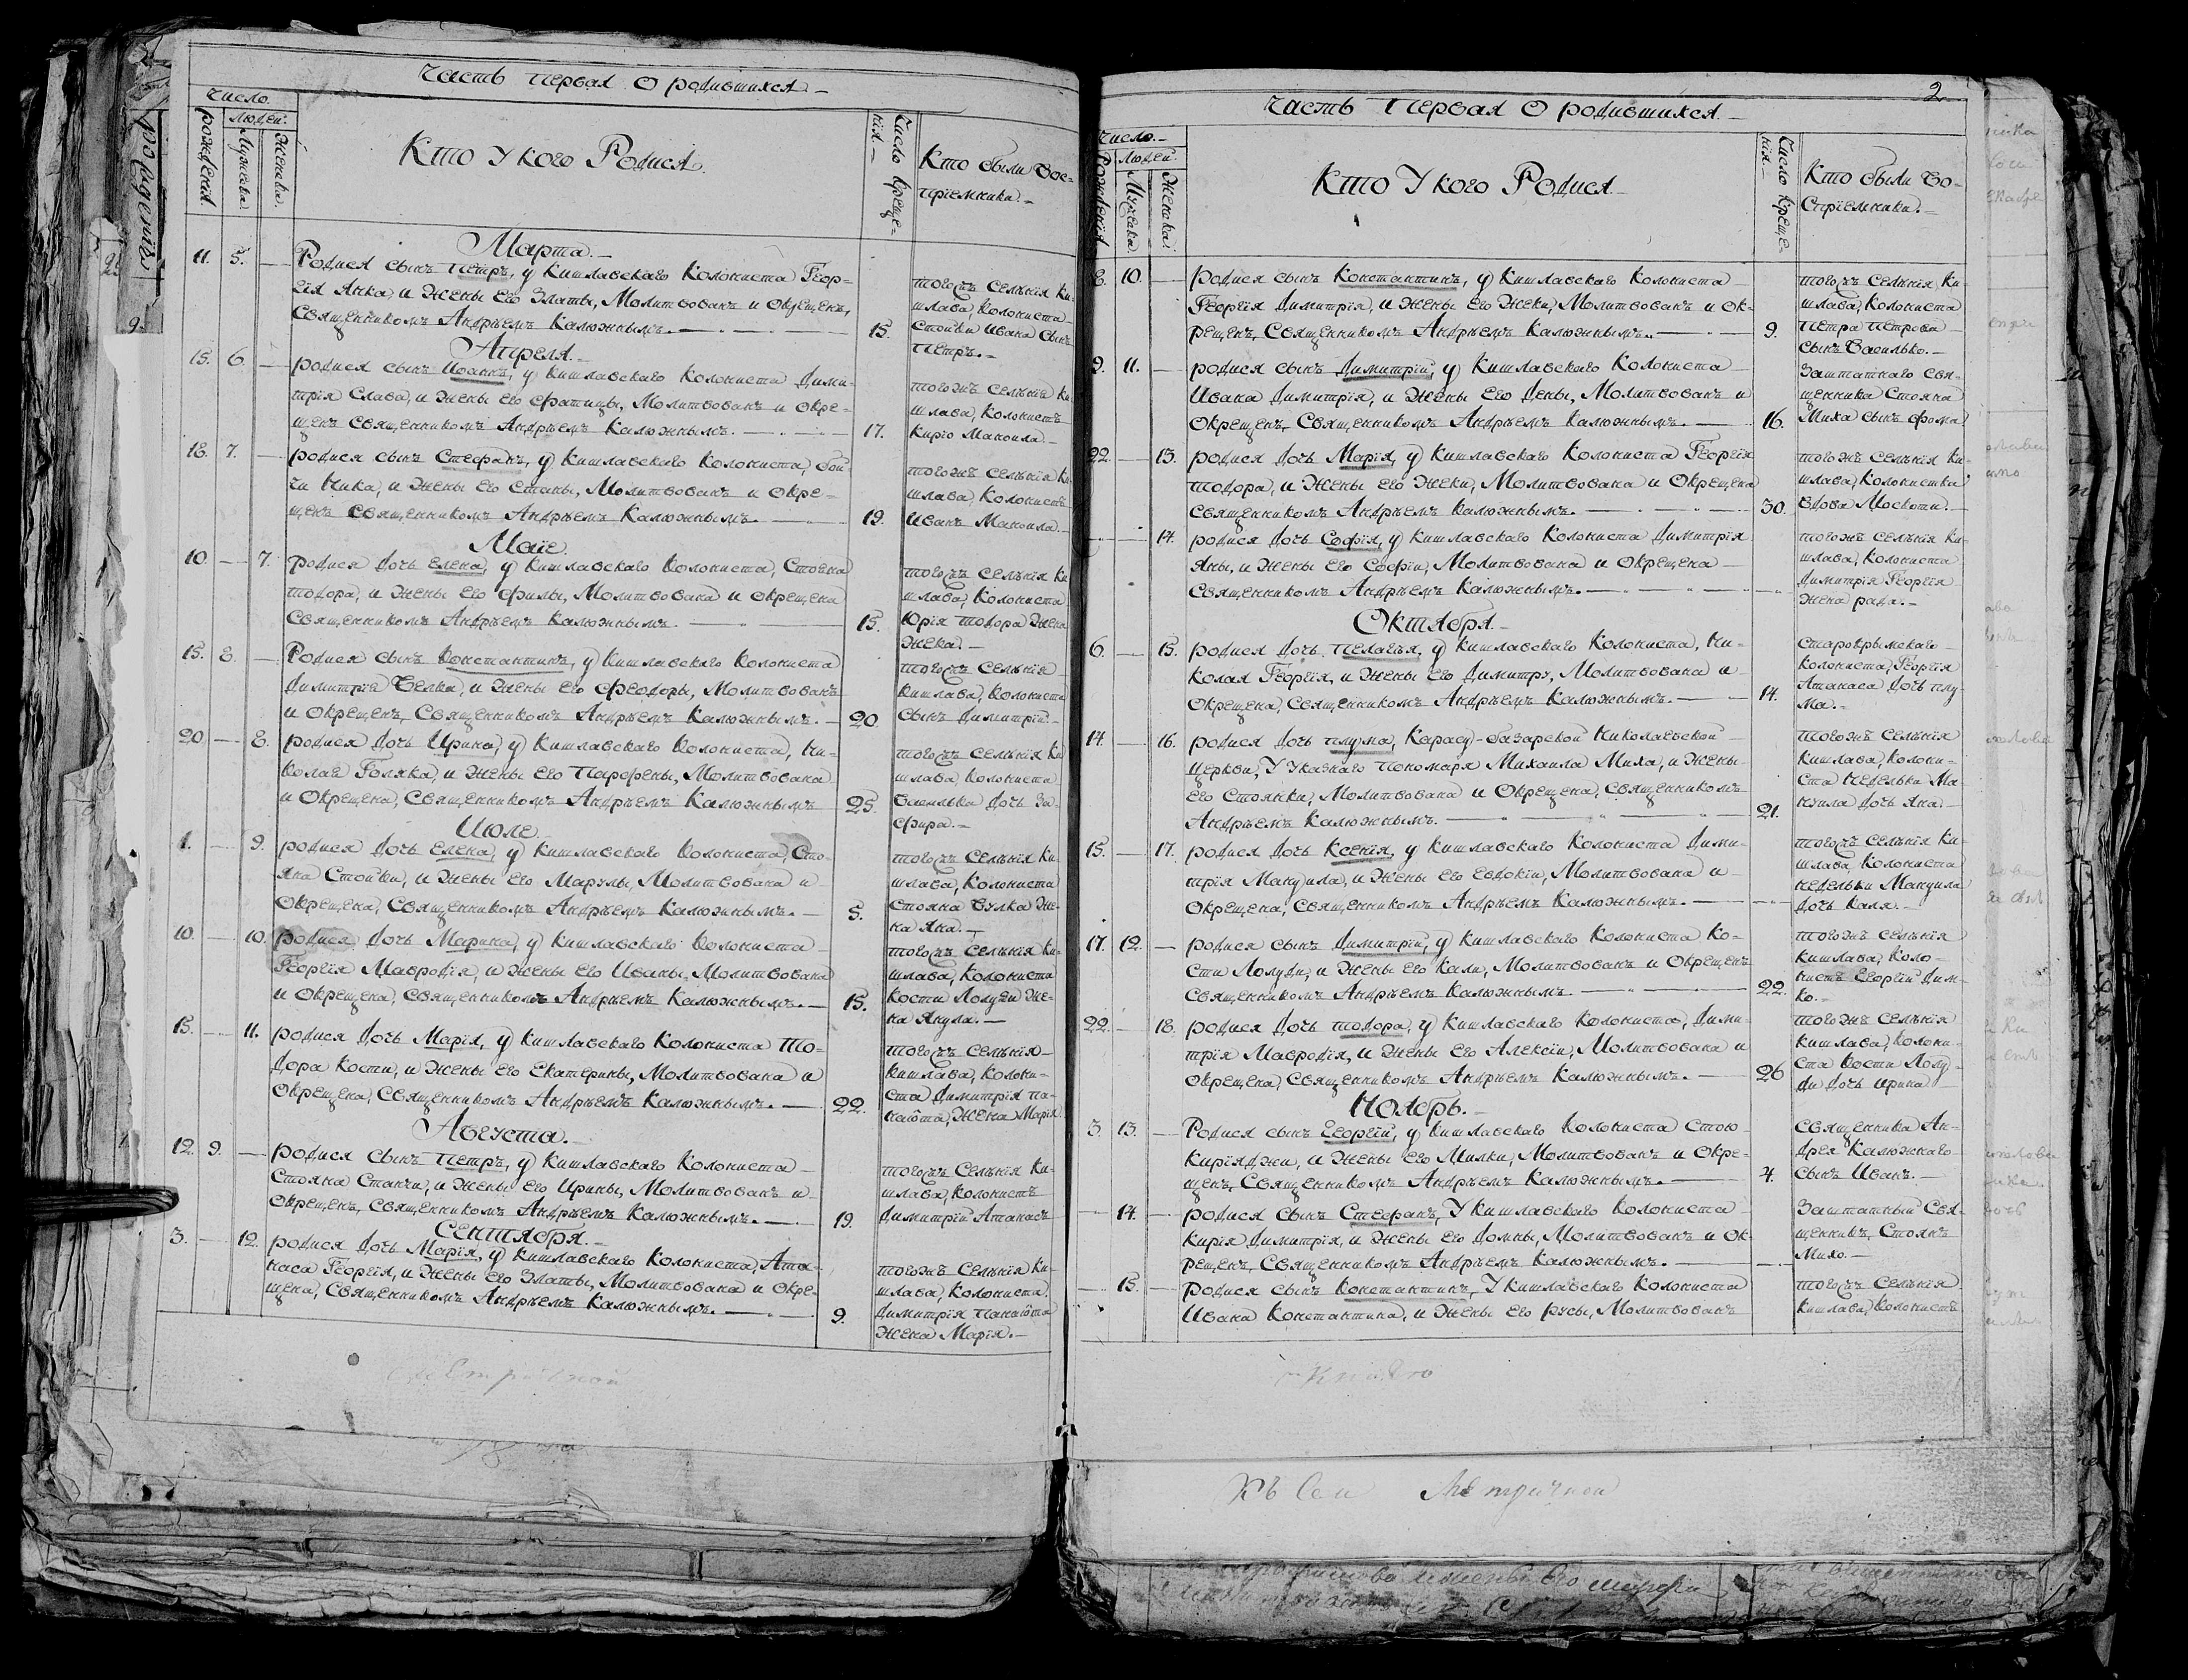 Часть Первая О родившихся
Число
рожденія
Людей
Мужеска
Женска
Кто У кого Родися
Число Креще-
нія
Кто были Вос-
пріемники
Марта
11. 5. Родися сынъ Петръ, у Кишлавскаго Колониста Геор-
гія Янка, и Жены Его Златы, Молитвованъ и Окрещенъ,
Священникомъ Андреемъ Калюжнымъ. 15.
тогожъ селенія Ки-
шлава, Колониста
Стойки Ивана сынъ
Петръ.
Апреля
15. 6. родися сынъ Иоаннъ, у Кишлавскаго Колониста Дими-
трія Слава, и Жены Его Фатицы, Молитвованъ и Окре-
щенъ Священникомъ Андреемъ Калюжнымъ. 17.
тогожъ селенія Ки-
шлава, Колонистъ
Кирїо Маноила.
18. 7. родися сынъ Стефанъ, у Кишлавскаго Колониста, Бой-
чи Ника, и Жены Его Станы, Молитвованъ и Окре-
щенъ Священникомъ Андреемъ Калюжнымъ. 19.
тогожъ селенія Ки-
шлава, Колонистъ
Иванъ Маноила.
Маїе
10. 7. родися Дочь Елена, у Кишлавскаго Колониста, Стояна
тодора, и Жены Его Филы, Молитвована и Окрещена
Священникомъ Андреемъ Калюжнымъ. 15.
тогожъ селенія Ки
шлава, Колониста
Юрія тодора Жена
Жека.
15. 8. Родися сынъ Константинъ, у Кишлавскаго Колониста
Димитрїя Велка, и Жены Его Феодоры, Молитвованъ
и Окрещенъ, Священникомъ Андреемъ Калюжнымъ. 20
тогожъ селенія
Кишлава, Колониста
сынъ Димитрій.
20 8. родися Дочь Ирина, у Кишлавскаго Колониста, Ни-
колая Голяка, и Жены Его Парфены, Молитвована
и Окрещена, Священникомъ Андреемъ Калюжнымъ 25.
тогожъ селенія Ки
шлава, Колониста
Василька Дочь За-
фира.
Июле
1. 9. родися Дочь Елена, у Кишлавскаго Колониста, Сто-
яна Стойки, и Жены Его Марулы, Молитвована и
Окрещена, Священникомъ Андреемъ Калюжнымъ. 5.
тогожъ селенія Ки-
шлава, Колониста
Стояна Вулка Же-
на Яна.
10. 10. родися Дочь Марина, у Кишлавскаго Колониста
Георгїя Мавродїя, и Жены Его Иваны, Молитвована
и Окрещена, Священникомъ Андреемъ Калюжнымъ. 15.
тогожъ селенія Ки-
шлава, Колониста
Кости Лолуди Же-
на Янула.
15. 11. родися Дочь Марїя, у Кишлавскаго Колониста То-
дора Кости, и Жены Его Екатерины, Молитвована и
Окрещена, Священникомъ Андреемъ Калюжнымъ. 22.
тогожъ селенія
Кишлава, Колони-
ста Димитрїя Па-
наїота, Жена Марїя
Августа
12. 9. родися сынъ Петръ, у Кишлавскаго Колониста
Стояна Станчи, и Жены Его Ирины, Молитвованъ и
Окрещенъ, Священникомъ Андреемъ Калюжнымъ. 19.
тогожъ селенія Ки-
шлава, Колонистъ
Димитрїй Атанасъ
Сентября
3. 12. родися Дочь Марїя, у Кишлавскаго Колониста, Ата-
наса Георгїя, и Жены Его Златы, Молитвована и Окре-
щена, Священникомъ Андреемъ Калюжнымъ. 9.
тогожъ селенія Ки-
шлава, Колониста
Димитрїя Панаїота
Жена Марїя.
2.
Часть Первая О родившихся
Число
Рожденія
Людей
Мужеска
Женска
Кто У кого Родися
Число Креще-
нія
Кто были Во-
спріемники.
8. 10. родися сынъ Константинъ, у Кишлавскаго Колониста
Георгїя Димитрїя, и Жены Его Жеки, Молитвованъ и Ок-
рещенъ, Священникомъ Андреемъ Калюжнымъ. 9.
тогожъ селенія Ки
шлава, Колониста
Петра Петрова
сынъ Василько.
9. 11. родися сынъ Димитрїй, у Кишлавскаго Колониста
Ивана Димитрїя, и Жены Его Дены, Молитвованъ и
Окрещенъ, Священникомъ Андреемъ Калюжнымъ. 16.
Заштатнаго свя-
щенника Стояна
Миха сынъ Фома
22. 13. родися Дочь Марїя, у Кишлавскаго Колониста Георгїя
тодора, и Жены Его Жеки, Молитвована и Окрещена
Священникомъ Андреемъ Калюжнымъ. 30.
тогожъ селенія Ки-
шлава, Колонистка
Вдова Москоти.
14. родися Дочь Софїя, у Кишлавскаго Колониста Димитрїя
Яны, и Жены Его Софїи, Молитвована и Окрещена
Священникомъ Андреемъ Калюжнымъ.
тогожъ селенія Ки-
шлава, Колониста
Димитрїя Георгїя
Жена рада.
Октября
6. 15. родися Дочь Пелагїя, у Кишлавскаго Колониста, Ни-
колая Георгїя, и Жены Его Димитры, Молитвована и
Окрещена, Священникомъ Андреемъ Калюжнымъ. 14.
Старокрымскаго
Колониста, Георгїя
Атанаса Дочь Плу-
ма.
14. 16. родися Дочь Плума, Карасу-Базарской Николаевской
Церкви, У Указнаго Пономаря Михаила Миха, и Жены
Его Стоянки, Молитвована и Окрещена, Священникомъ
Андреемъ Калюжнымъ. 21.
тогожъ селенія
Кишлава, Колони-
ста Недельки Ма
нуила Дочь Яна.
15. 17. родися Дочь Ксенїя, у Кишлавскаго Колониста Дими-
трїя Мануила, и Жены Его Евдокїи, Молитвована и
Окрещена, Священникомъ Андреемъ Калюжнымъ.
тогожъ селенія Ки-
шлава, Колониста
Недельки Мануила
Дочь Каля.
17. 12. родися сынъ Димитрїй, у Кишлавскаго Колониста Ко-
сти Лолуди, и Жены Его Кали, Молитвованъ и Окрещенъ
Священникомъ Андреемъ Калюжнымъ. 22.
тогожъ селенія
Кишлава, Коло-
нистъ Георгїй Дим-
ко.
22. 18. родися Дочь тодора, у Кишлавскаго Колониста, Дими-
трїя Мавродїя, и Жены Его Алексїи, Молитвована и
Окрещена, Священникомъ Андреемъ Калюжнымъ. 26
тогожъ селенія
Кишлава, Колони-
ста Кости Лолу-
ди Дочь Ирина
Ноябрь.
3. 13. Родися сынъ Георгїй, у Кишлавскаго Колониста Стою
Кирїяджи, и Жены Его Милки, Молитвованъ и Окре-
щенъ, Священникомъ Андреемъ Калюжнымъ. 4.
Священника Ан-
дрея Калюжнаго
сынъ Иванъ.
14. родися сынъ Стефанъ, У Кишлавскаго Колониста
Кирїя Димитрїя, и Жены Его Домны, Молитвованъ и Ок
рещенъ, Священникомъ Андреемъ Калюжнымъ.
Заштатный Свя-
щенникъ, Стоянъ
Михо.
15. родися сынъ Константинъ, У Кишлавскаго Колониста
Ивана Константина, и Жены Его Русы, Молитвованъ
тогожъ селенія
Кишлава, Колонистъ
Къ сей Метричной